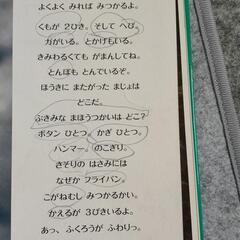 よくよく みれば みつかるよ。
くもが 2ひき。そして へび。
ガがいる。とかげもいる。
きみわるくても がまんしてね。
とんぼも とんでいるぞ。
ほうきに またがった まじょは
どこだ。
ぶきみな まほうつかいは どこ?
ボタン ひとつ。かぎ ひとつ。
ハンマー。のこぎり。
さそりの はさみには
なぜか フライパン。
こがねむし みつかるかい。
かえるが 3びきいるよ。
あっ、ふくろうが ふわりっ。